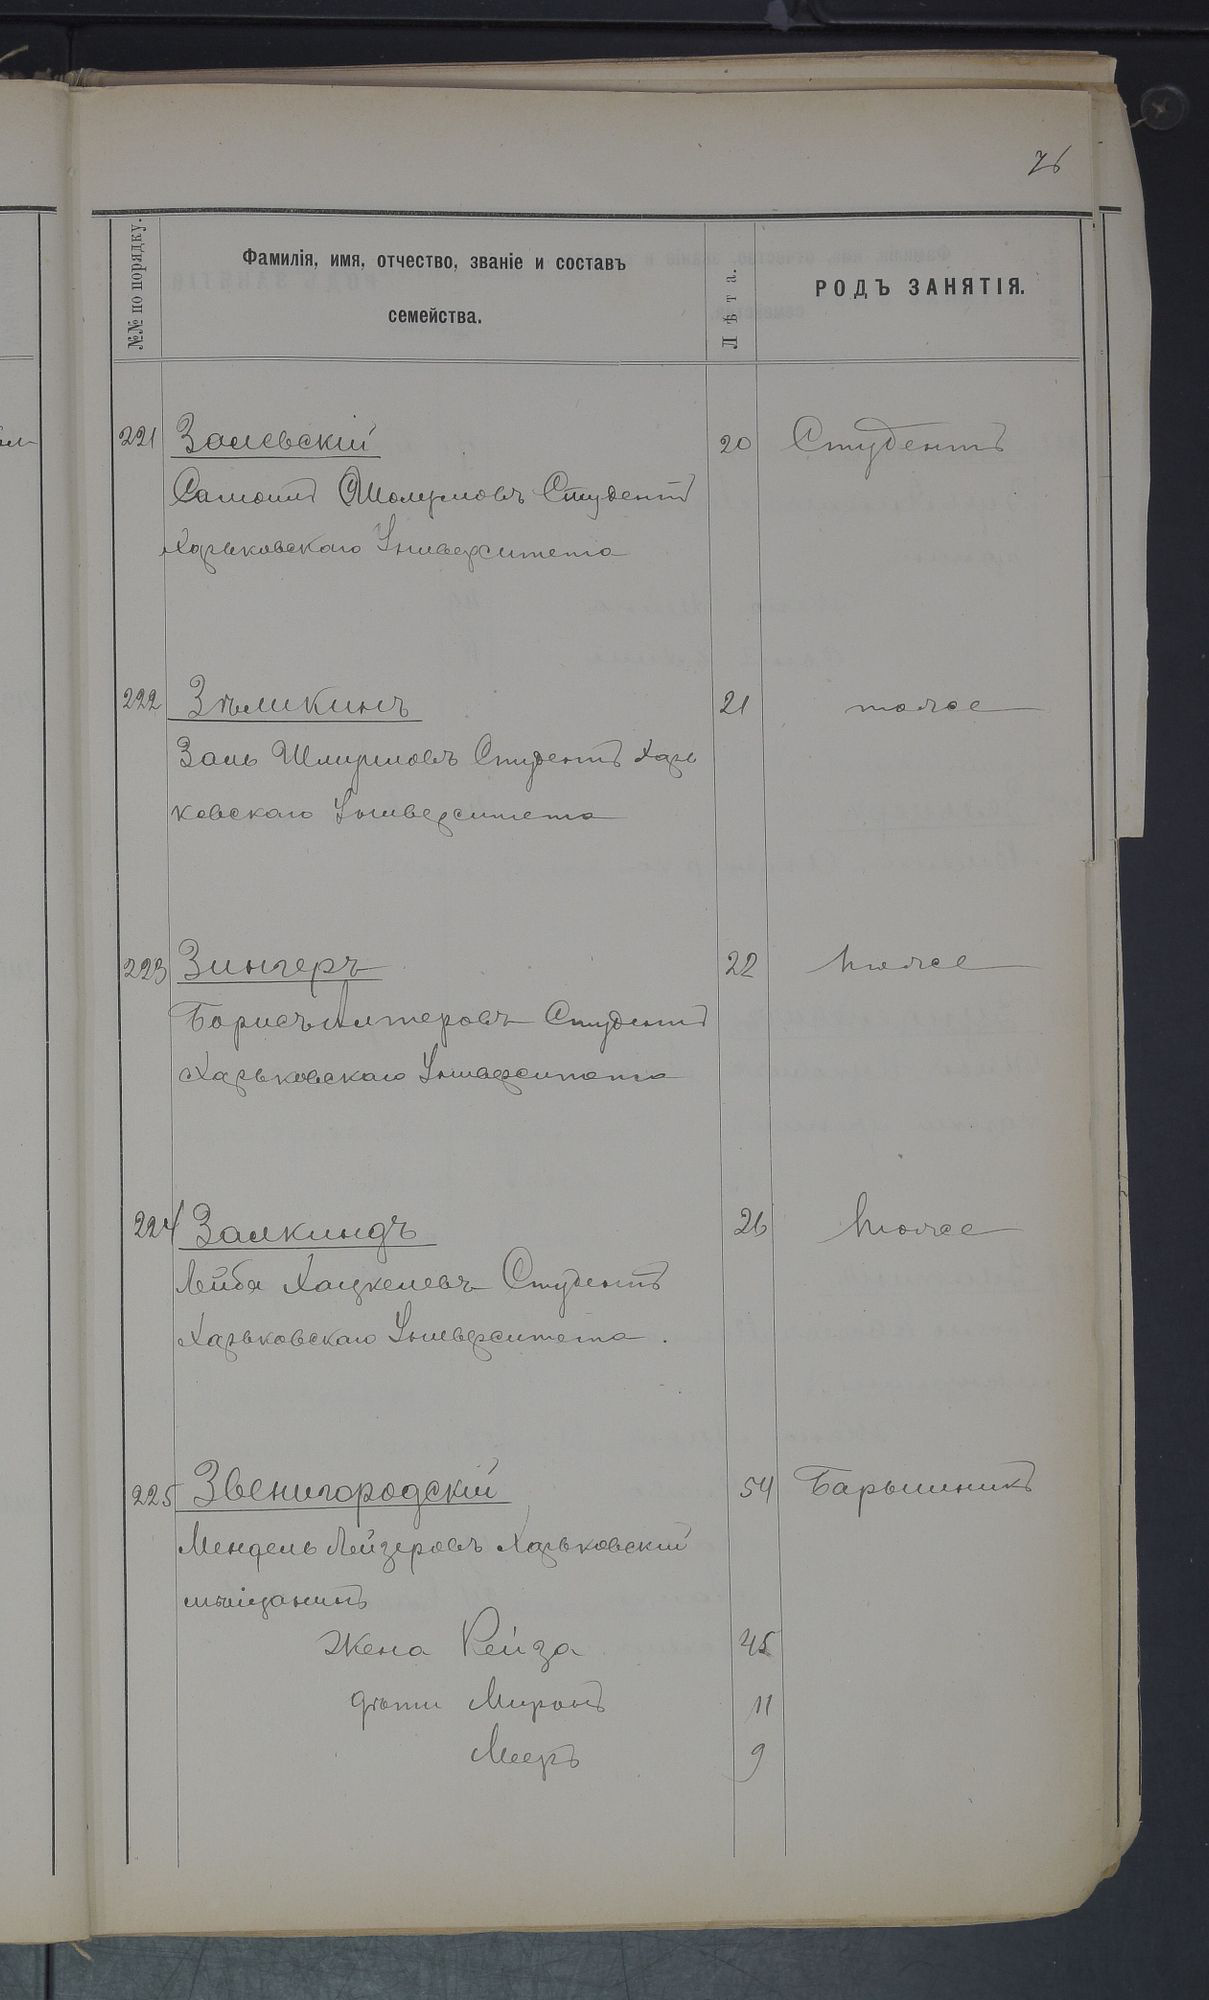 76
№№ по порядку.
Фамилія, имя, отчество, званіе и составъ
семейства.
Лѣта.
РОДЪ ЗАНЯТІЯ.
221 Залевскій 20 Студентъ
Самоилъ Шолумовъ Студентъ
Харьковскаго Университета
222 Зѣликинъ 21 тоже
Залъ Шмуиловъ Студентъ Харь
ковскаго Университета
223 Зингеръ 22 тоже
Борисъ Алтеровъ Студентъ
Харьковскаго Университета
224 Залкиндъ 26 тоже
Лейба Хацкелевъ Студентъ
Харьковскаго Университета.
225 Звенигородскій 54 Барышникъ
Мендель Лейзеровъ Харьковскій
мѣщанинъ
Жена Рейза 45
дѣти Миронъ 11
Мееръ 9